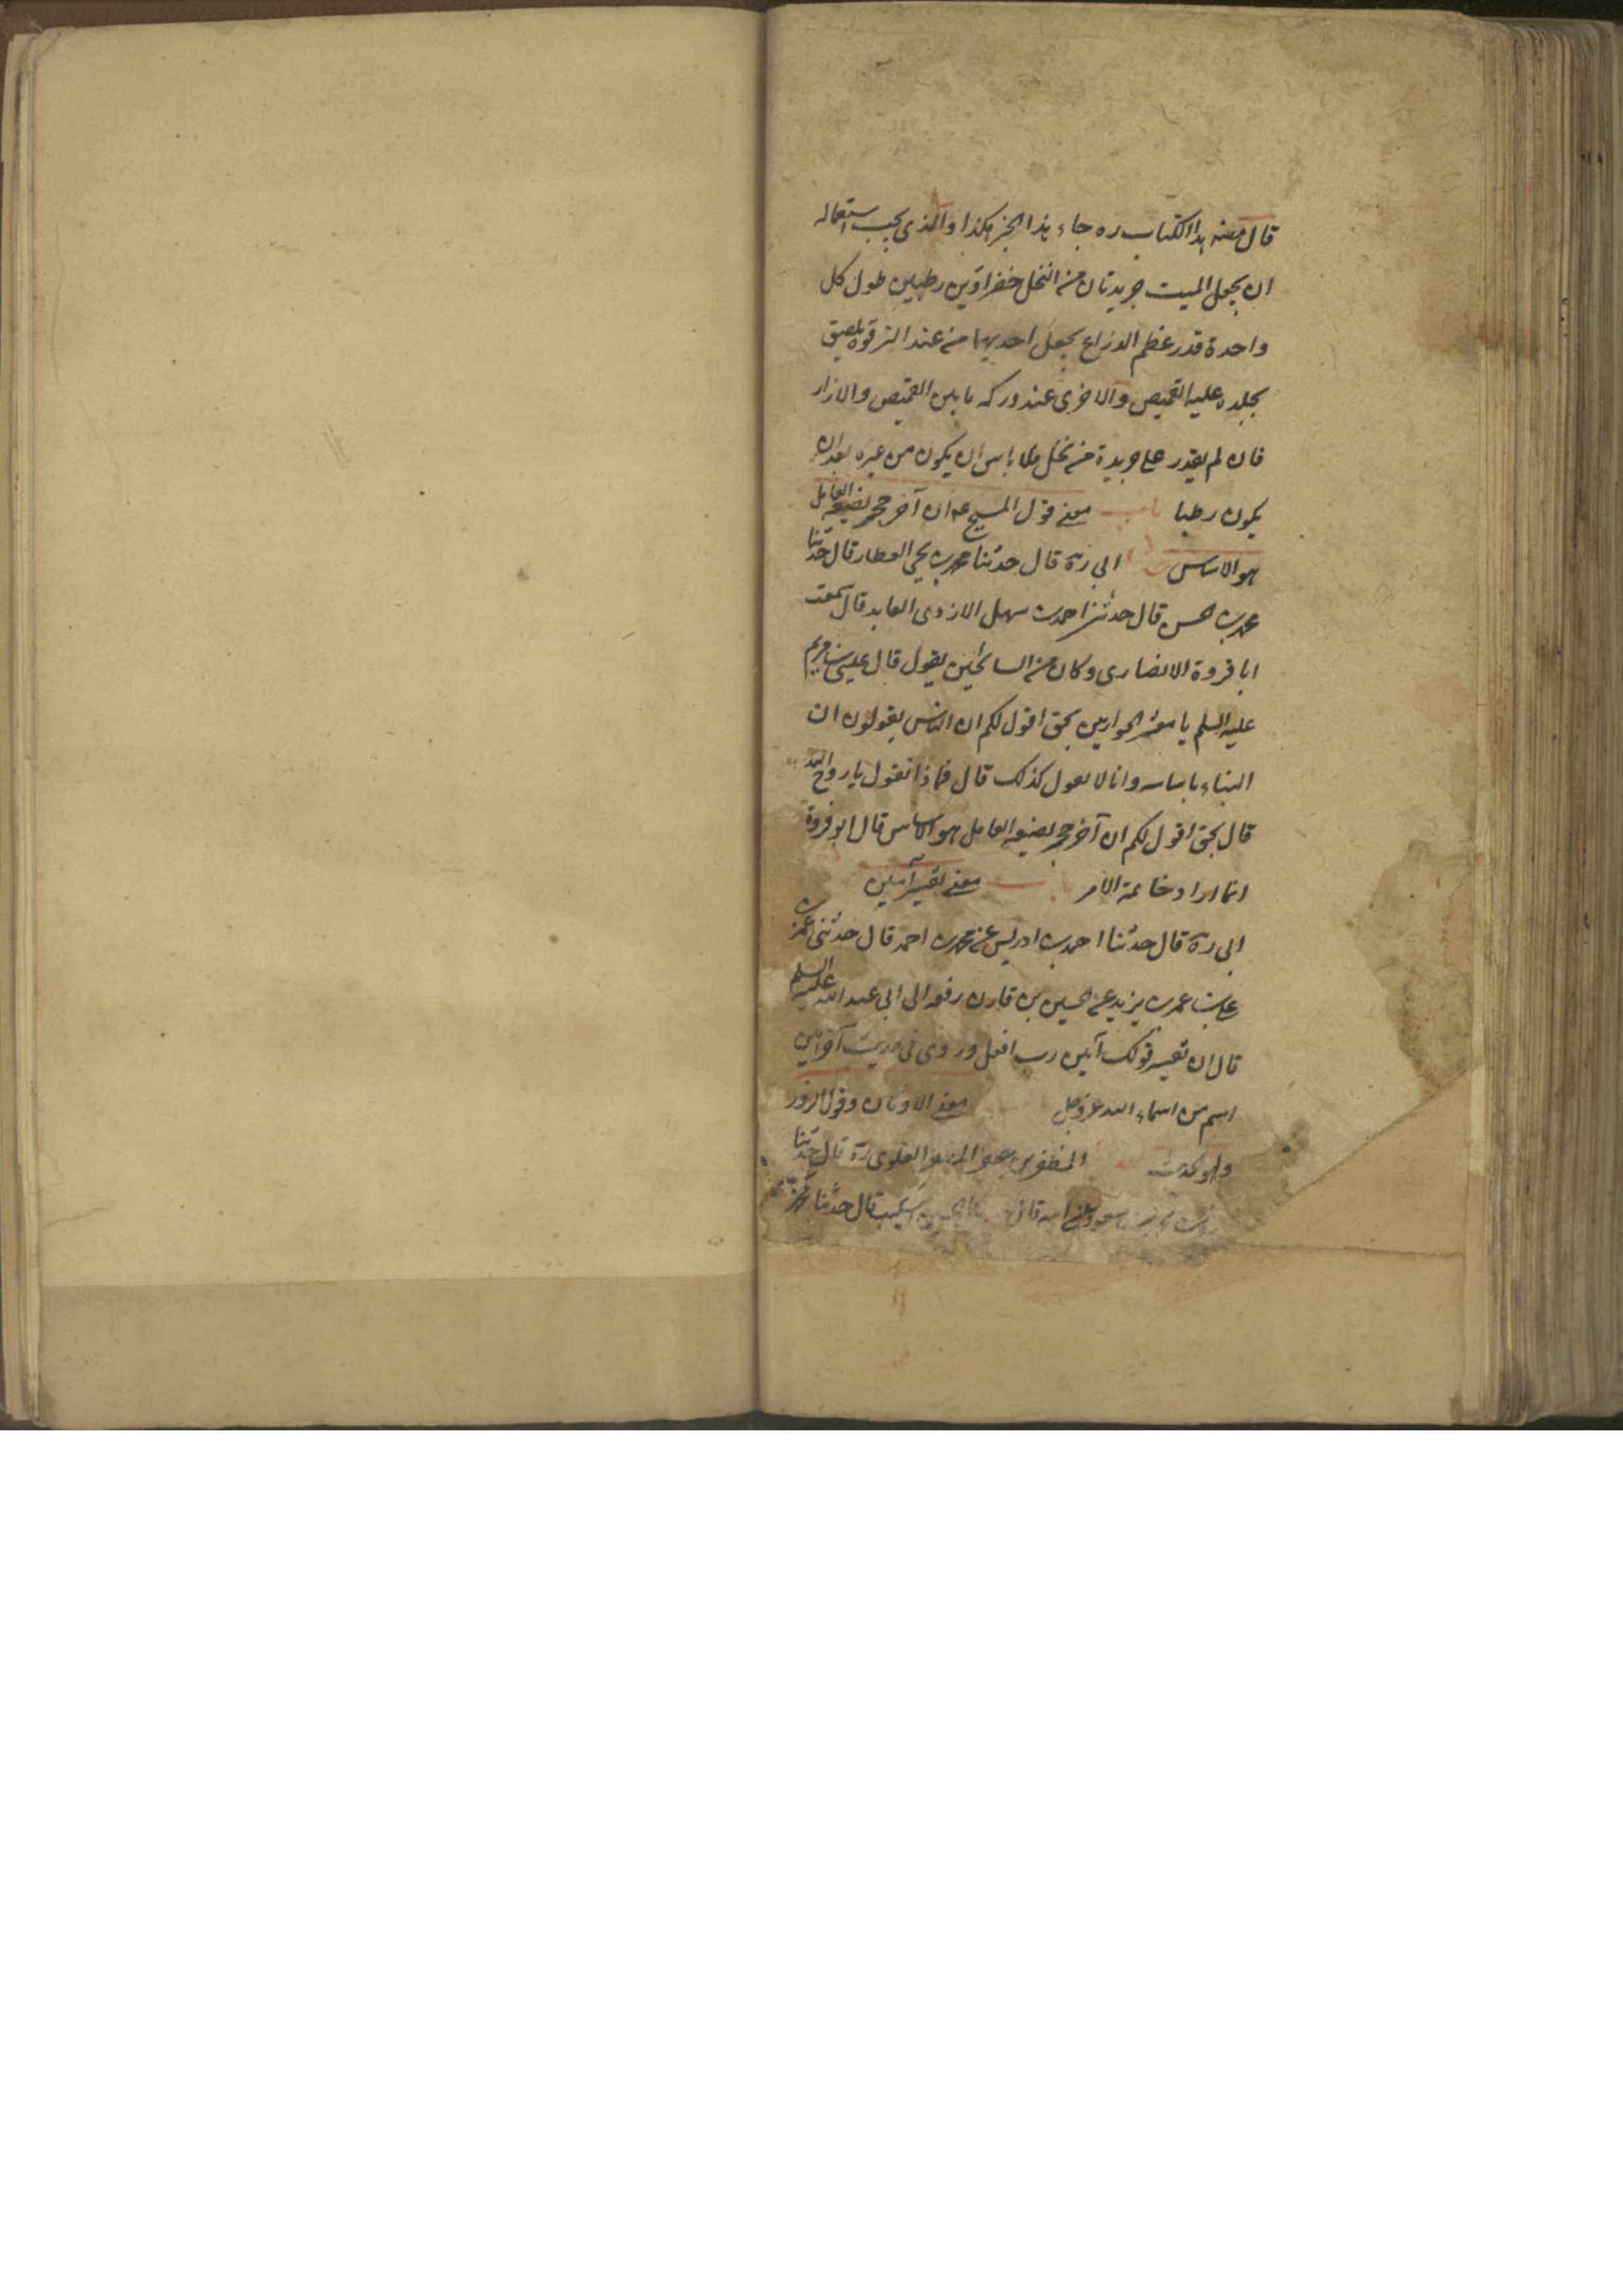 قال مصنف هذا الكتاب ره جاء هذا الخبر هكذا والذي يجب استعماله
ان يجعل للميت جريدتان من النخل خضراوين رطبين طول كل
واحدة قدر عظم الذراع يجعل احديهما من عند الترقوة يلصق
بجلده عليه القميص والاخرى عند وركه ما بين القميص والازار
فان لم يقدر على جريدة من نخل فلا باس ان يكون من غيره بعد ان
يكون رطبا باب معنى قول المسيح ع ان آخر حجر يضعه العامل
هو الاساس ابي ره قال حدثنا محمد بن يحيى العطار قال حدثنا
محمد بن الحسن قال حدثنا احمد بن سهل الازدي العابد قال سمعت
ابا فروة الانصاري وكان من السائحين يقول قال عيسى بن مريم
عليه السلم يا معشر الحواريين بحق اقول لكم ان الناس يقولون ان
البناء باساسه وانا لا اقول كذلك قال فماذا تقول يا روح الله
قال بحق اقول لكم ان آخر حجر يضعه العامل هو الاساس قال ابو فروة
انما اراد خاتمة الامر باب معنى تفسير آمين
ابي ره قال حدثنا احمد بن ادريس عن محمد بن احمد قال حدثني عمر بن
علي بن عمر بن يزيد عن الحسين بن قارن رفعه الى ابي عبد الله عليه السلم
قال ان تفسير قولك آمين رب افعل وروي في حديث آخر آمين
اسم من اسماء الله عز وجل معنى الاوثان وقول الزور
ولهو الحديث المظفر بن جعفر بن المظفر العلوي ره قال حدثنا
بن محمد بن مسعود عن ابيه قال الحسين بن اشكيب قال حدثنا محمد بن